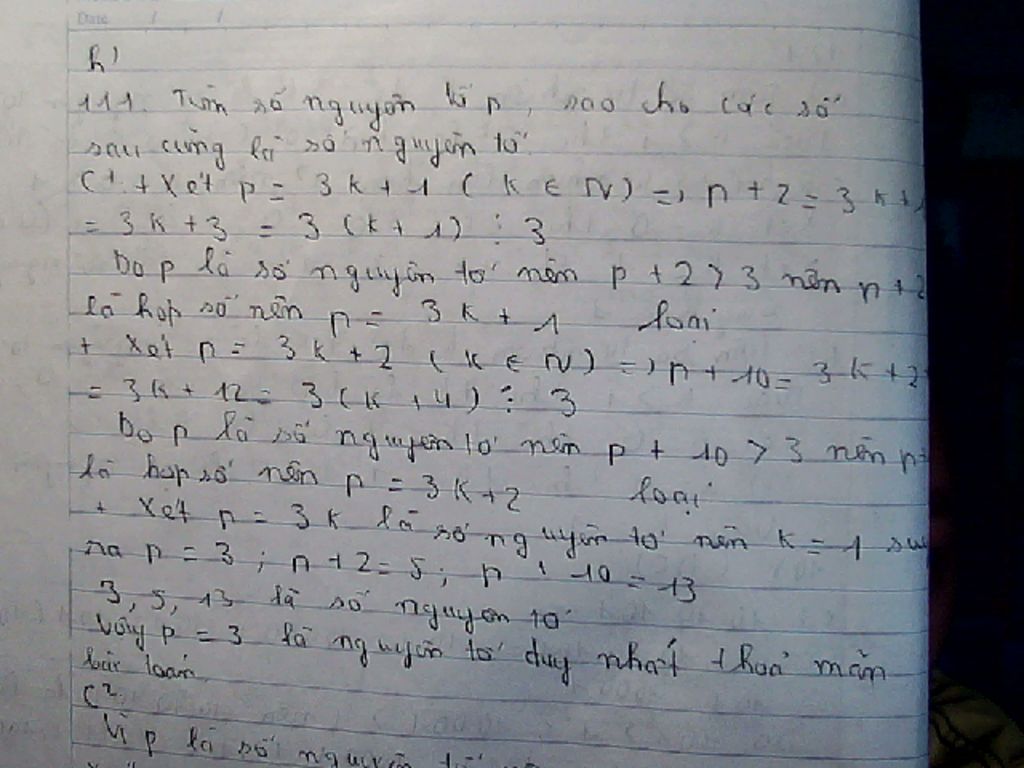 Date / /
h)
111. Tìm số nguyên tố p, sao cho các số
sau cũng là số nguyên tố
C1 + Xét p = 3k + 1 ( k ∈ N ) => p + 2 = 3k + 1
= 3k + 3 = 3 (k + 1) ⋮ 3
Do p là số nguyên tố nên p + 2 > 3 nên p + 2
là hợp số nên p = 3k + 1 loại
+ Xét p = 3k + 2 ( k ∈ N ) => p + 10 = 3k + 2
= 3k + 12 = 3 (k + 4) ⋮ 3
Do p là số nguyên tố nên p + 10 > 3 nên p +
là hợp số nên p = 3k + 2 loại
+ Xét p = 3k là số nguyên tố nên k = 1 suy
ra p = 3 ; p + 2 = 5 ; p + 10 = 13
3, 5, 13 là số nguyên tố
Vậy p = 3 là nguyên tố duy nhất thoả mãn
bài toán
C2
Vì p là số nguyên tố